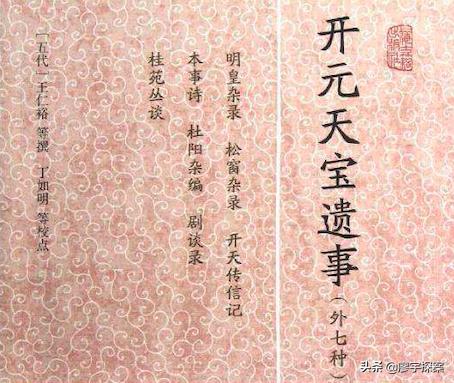 开元天宝遗事(外七种)
明皇杂录 松窗杂录 开天传信记
本事诗 杜阳杂编 剧谈录
桂苑丛谈
[五代]王仁裕 等撰 丁如明 等校点
头条 @廖宇探案